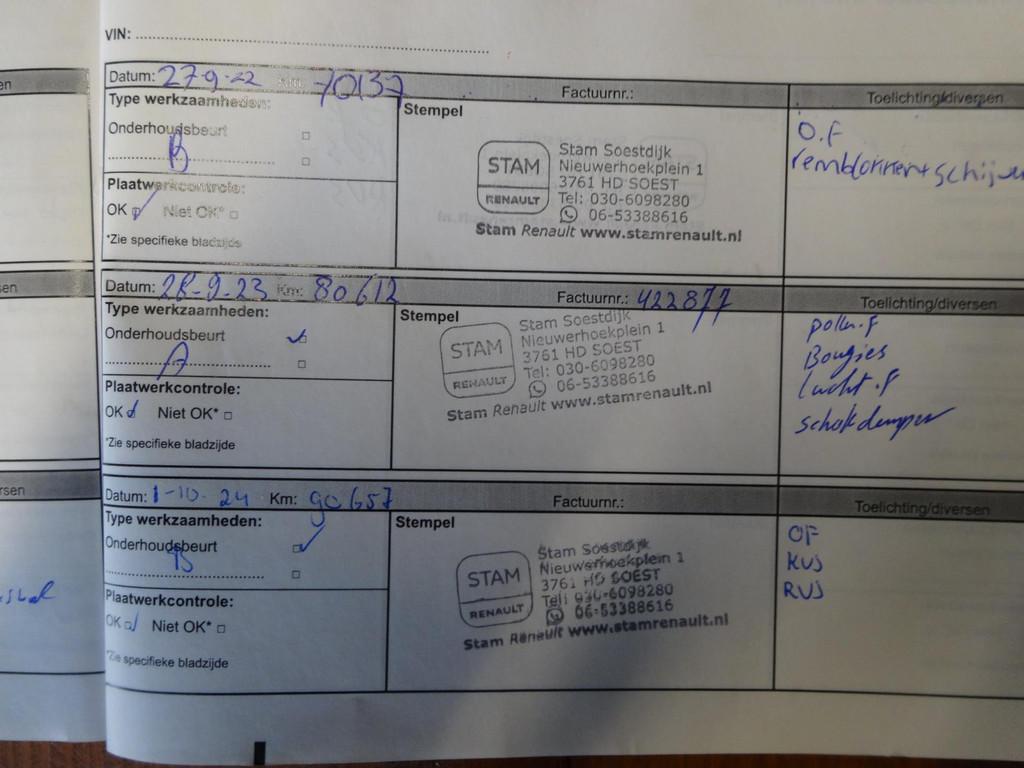 VIN:
Datum: 27-9-22 Km: 70137 Factuurnr.: Toelichting/diversen
Type werkzaamheden:
Stempel
Onderhoudsbeurt
B
Plaatwerkcontrole:
OK Niet OK*
*Zie specifieke bladzijde
STAM
RENAULT
Stam Soestdijk
Nieuwerhoekplein 1
3761 HD SOEST
Tel: 030-6098280
06-53388616
Stam Renault www.stamrenault.nl
O.F
remblokken + schijven
Datum: 28-9-23 Km: 80612 Factuurnr.: 422877 Toelichting/diversen
Type werkzaamheden:
Stempel
Onderhoudsbeurt
A
Plaatwerkcontrole:
OK Niet OK*
*Zie specifieke bladzijde
STAM
RENAULT
Stam Soestdijk
Nieuwerhoekplein 1
3761 HD SOEST
Tel: 030-6098280
06-53388616
Stam Renault www.stamrenault.nl
pollen.f
Bougies
lucht.f
schokdemper
Datum: 1-10-24 Km: 90657 Factuurnr.: Toelichting/diversen
Type werkzaamheden:
Stempel
Onderhoudsbeurt
B
Plaatwerkcontrole:
OK Niet OK*
*Zie specifieke bladzijde
STAM
RENAULT
Stam Soestdijk
Nieuwerhoekplein 1
3761 HD SOEST
Tel: 030-6098280
06-53388616
Stam Renault www.stamrenault.nl
OF
KVS
RVS